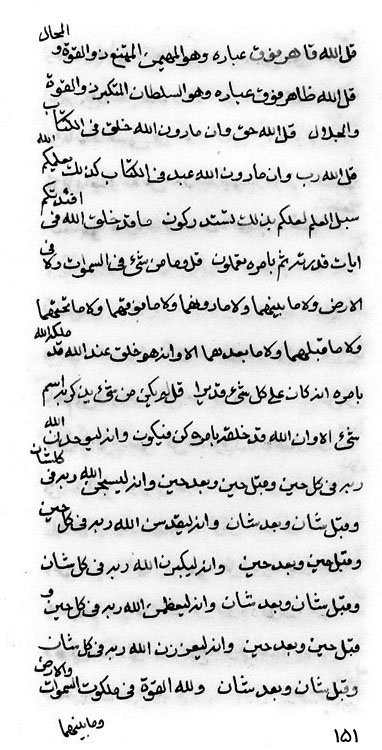 المحال
قل الله قاهر فوق عباده وهو المهيمن الممتنع ذو القوة و
قل الله ظاهر فوق عباده وهو السلطان المتكبر ذو القوة
والجلال قل الله حق وان ما دون الله خلق فى الكتاب
قل الله رب وان ما دون الله عبد فى الكتاب كذلك يعلمكم الله
سبل العلم لعلكم بذلك تستدركون ما قد خلق الله فى افئدتكم
ايات قدرته ثم بامره يعملون قل وما من شئ فى السموات ولا فى
الارض ولا ما بينهما ولا ما دونهما ولا ما فوقهما ولا ما تحتهما
ولا ما قبلهما ولا ما بعدهما الا وانه هو خلق عند الله قد ملكه الله
بامره انه كان على كل شئ قديرا قل لم يكن من شئ يذكر به اسم
شئ الا وان الله قد خلقه بامره كن فيكون وانه ليوحدن الله
ربه فى كل حين وقبل حين وبعد حين وانه ليسبحن الله ربه فى كلشان
وقبل شان وبعد شان وانه ليقدسن الله ربه فى كل حين
وقبل حين وبعد حين وانه ليكبرن الله ربه فى كل شان
وقبل شان وبعد شان وانه ليعظمن الله ربه فى كل حين و
قبل حين وبعد حين وانه ليعززن الله ربه فى كل شان
وقبل شان وبعد شان ولله القوة فى ملكوت السموات والارض
وما بينهما
١٥١